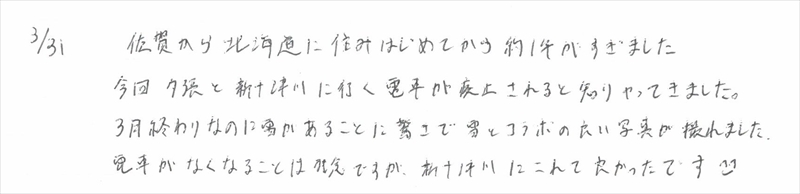 3/31 佐賀から北海道に住みはじめてから約1年がすぎました
今回夕張と新十津川に行く電車が廃止されると知りやってきました。
3月終わりなのに雪があることに驚きで雪とコラボの良い写真が撮れました。
電車がなくなることは残念ですが、新十津川にこれて良かったです